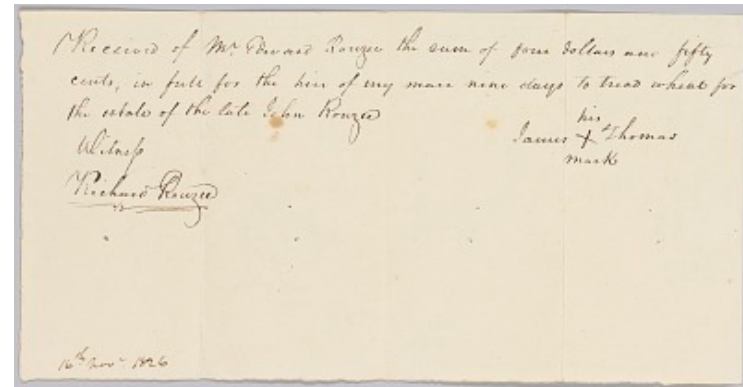 Received of Mr. Edward Rouzee the sum of four dollars and fifty
cents, in full for the hire of my mare nine days to tread wheat for
the estate of the late John Rouzee
his
James + Thomas
mark
Witness
Richard Rouzee
16th Novr 1826